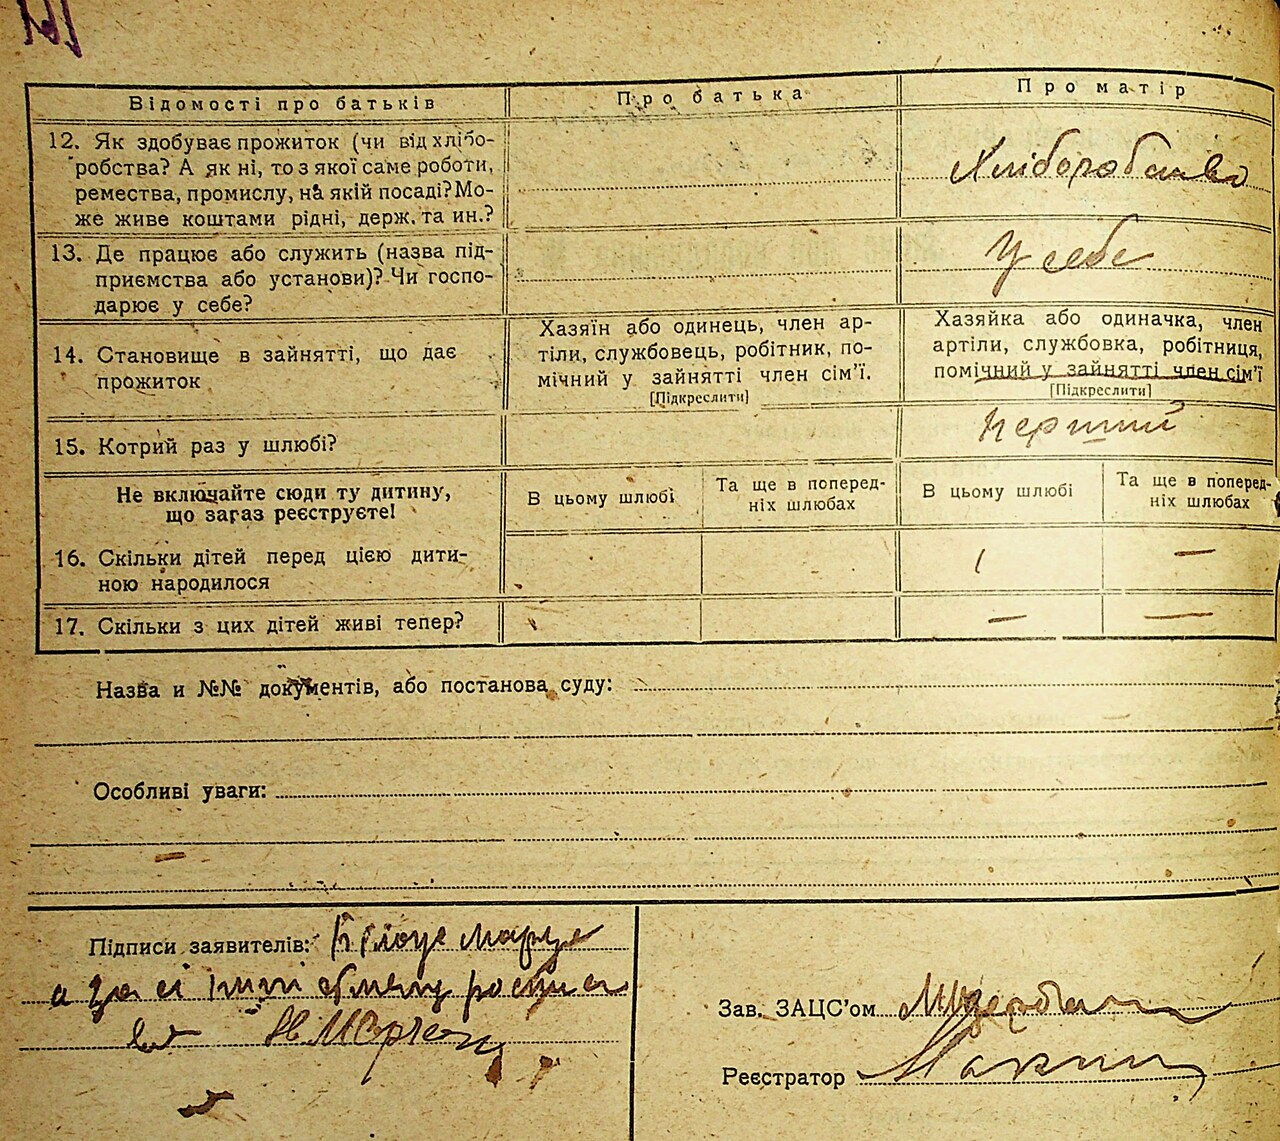 Відомості про батьків
Про батька
Про матір
12. Як здобуває прожиток (чи від хлібо-
робства? А як ні, то з якої саме роботи,
ремества, промислу, на якій посаді? Мо-
же живе коштами рідні, держ. та ин.?
Хліборобство
13. Де працює або служить (назва під-
приємства або установи)? Чи госпо-
дарює у себе?
У себе
14. Становище в зайнятті, що дає
прожиток
Хазяїн або одинець, член ар-
тіли, службовець, робітник, по-
мічний у зайнятті член сім'ї.
[Підкреслити]
Хазяйка або одиначка, член
артіли, службовка, робітниця,
помічний у зайнятті член сім'ї
[Підкреслити]
15. Котрий раз у шлюбі?
перший
Не включайте сюди ту дитину,
що зараз реєструєте!
В цьому шлюбі
Та ще в поперед-
ніх шлюбах
В цьому шлюбі
Та ще в поперед-
ніх шлюбах
16. Скільки дітей перед цією дити-
ною народилося
1
—
17. Скільки з цих дітей живі тепер?
—
—
Назва и №№ документів, або постанова суду:
Особливі уваги:
Підписи заявителів:
а за її
Зав. ЗАЦС'ом
Реєстратор